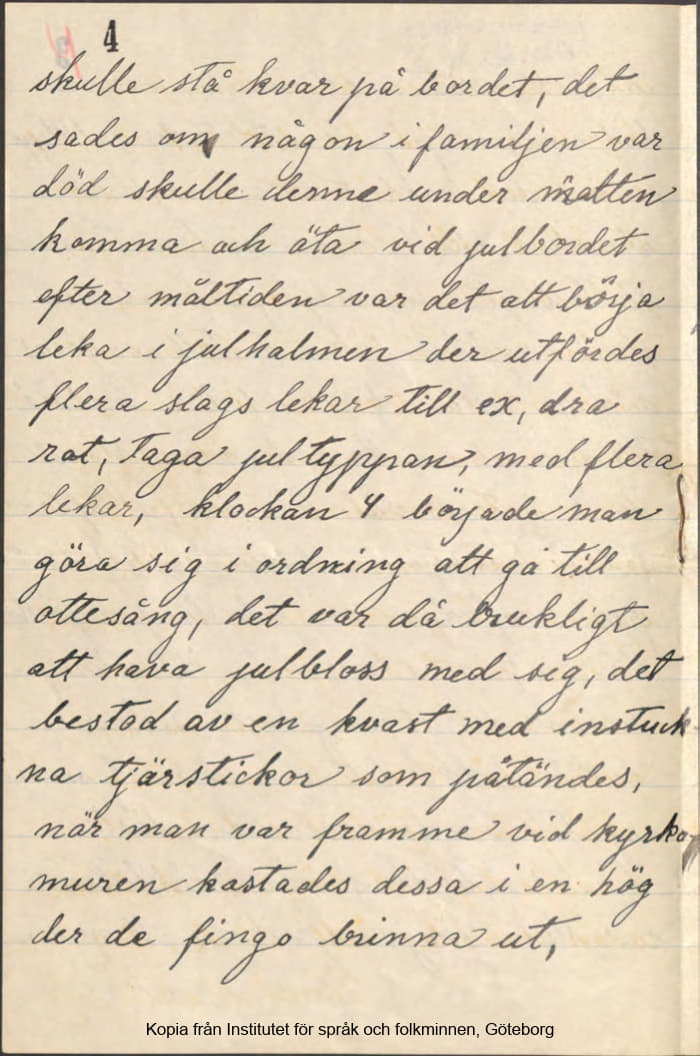 4
skulle stå kvar på bordet, det
sades om någon i familjen var
död skulle denne under natten
komma och äta vid julbordet
efter måltiden var det att börja
leka i julhalmen der utfördes
flera slags lekar till ex, dra
rot, Taga jultyppan, med flera
lekar, klockan 4 började man
göra sig i ordning att gå till
ottesång, det var då brukligt
att hava julbloss med sig, det
bestod av en kvast med instuck-
na tjärstickor som påtändes,
när man var framme vid kyrko-
muren kastades dessa i en hög
der de fingo brinna ut,
Kopia från Institutet för språk och folkminnen, Göteborg